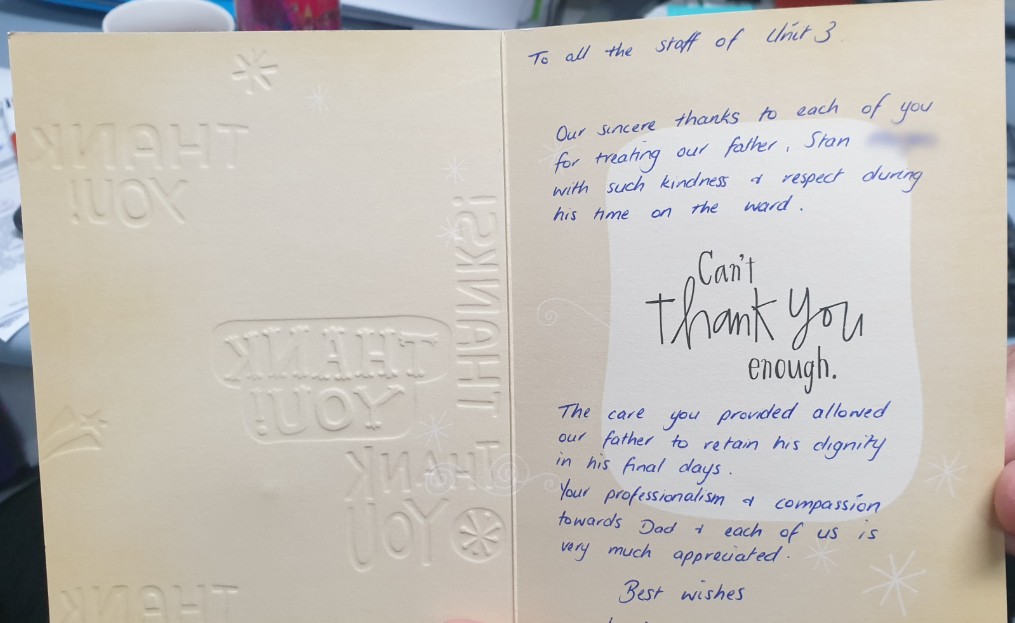 THANK
YOU!
THANKS!
THANK
YOU!
THANK
YOU
THANK
To all the staff of Unit 3
Our sincere thanks to each of you
for treating our father, Stan
with such kindness & respect during
his time on the ward.
Can't
thank you
enough.
The care you provided allowed
our father to retain his dignity
in his final days.
Your professionalism & compassion
towards Dad & each of us is
very much appreciated.
Best wishes